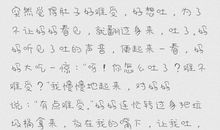 突然觉得肚子好难受，好想吐，为了
不让妈妈看见，就翻过身来，吐了，妈
妈听见了吐的声音，便起来一看，妈
妈大吃一惊：“呀！你怎么吐了？难不
难受？”我慢慢地起来，对妈妈
说：“有点难受，”妈妈连忙转过身把垃
圾桶拿来，放在我的嘴下，让我吐，